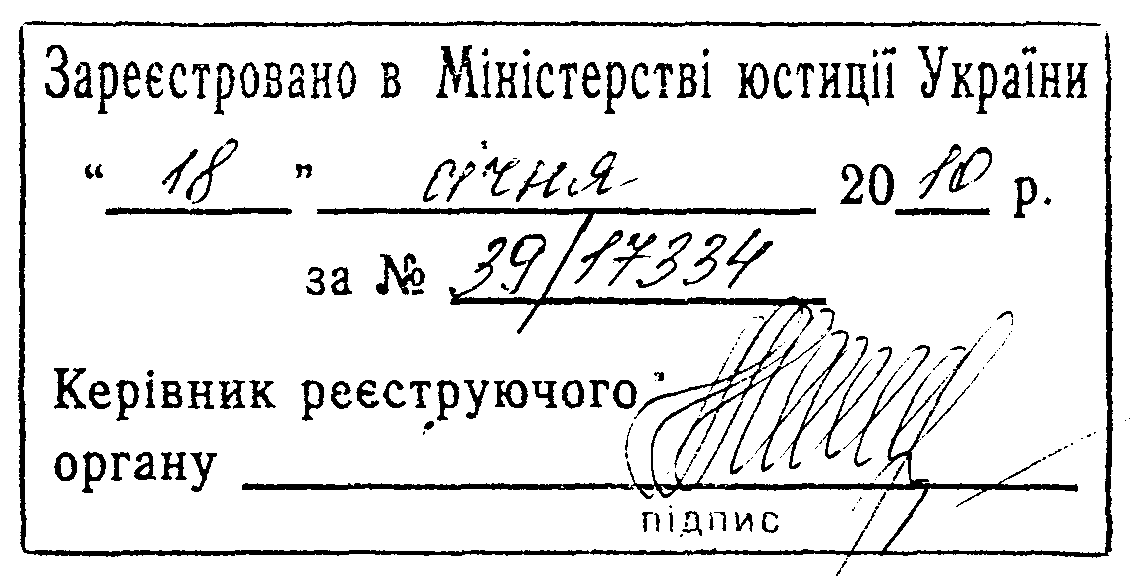 Зареєстровано в Міністерстві юстиції України
“ 18 ” січня 2010 р.
за № 39/17334
Керівник реєструючого
органу
підпис